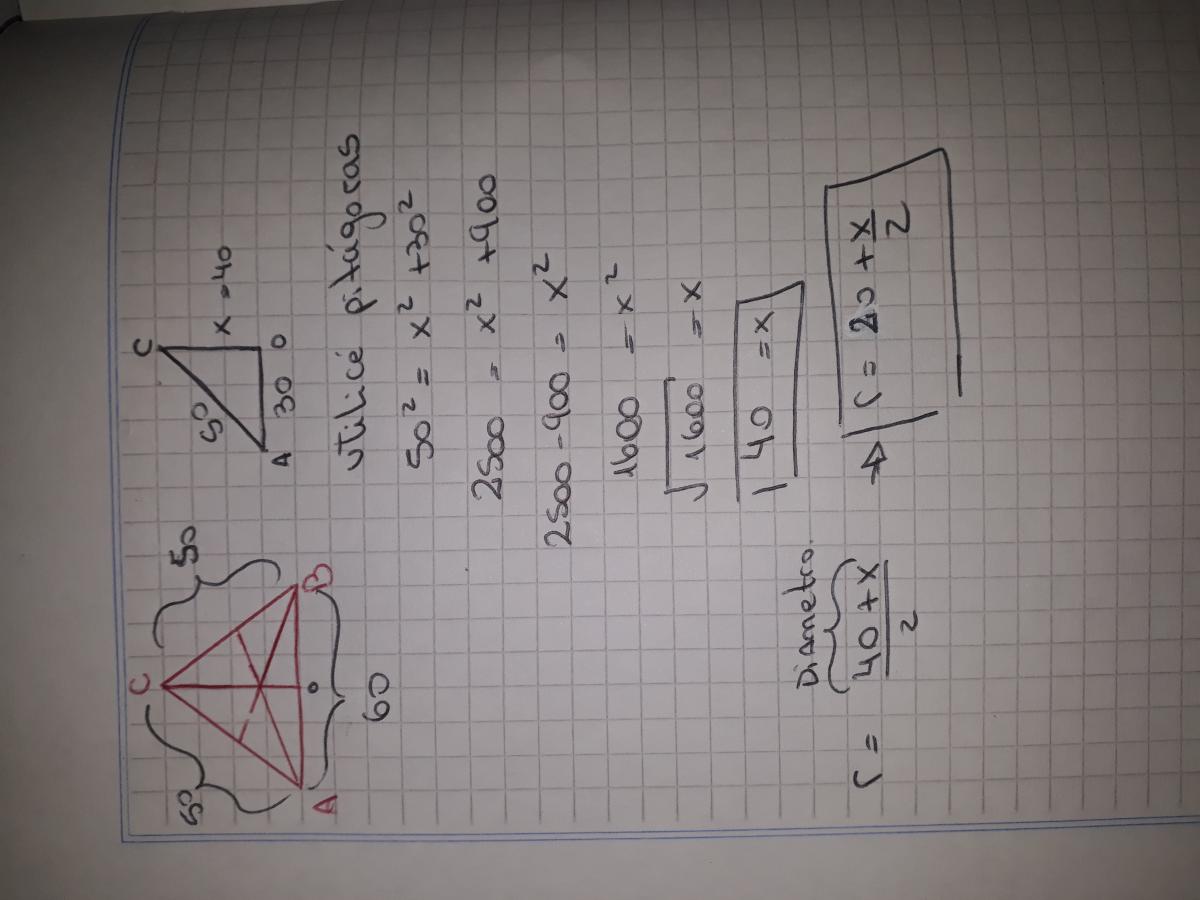 C
50
50
A
o
B
60
C
50
x=40
A
30
O
utilicé pitágoras
50² = x² +30²
2500 = x² +900
2500-900 = x²
1600 = x²
√1600 = x
40 = x
Diametro.
r = 40+x/2 → r = 20 + x/2